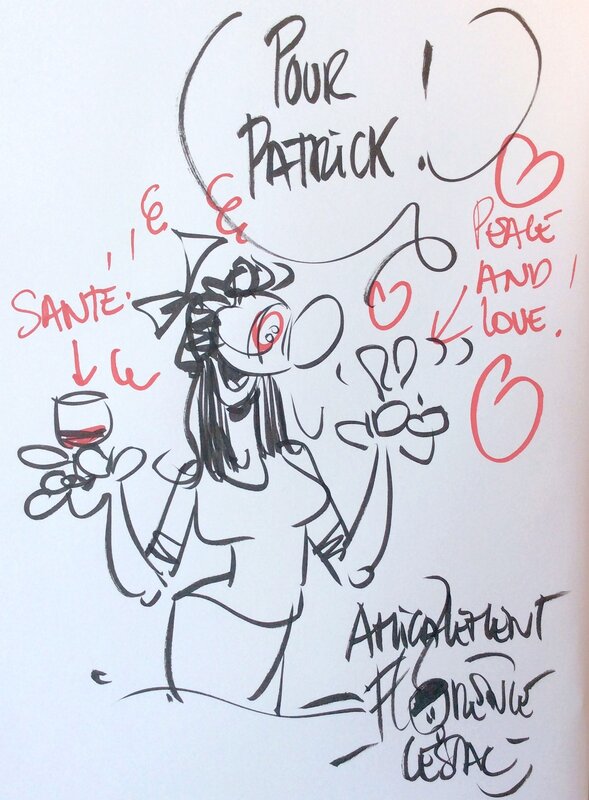 POUR
PATRICK !
SANTÉ !
PEACE
AND
LOVE.
AMICALEMENT
FLORENCE
CESTAC